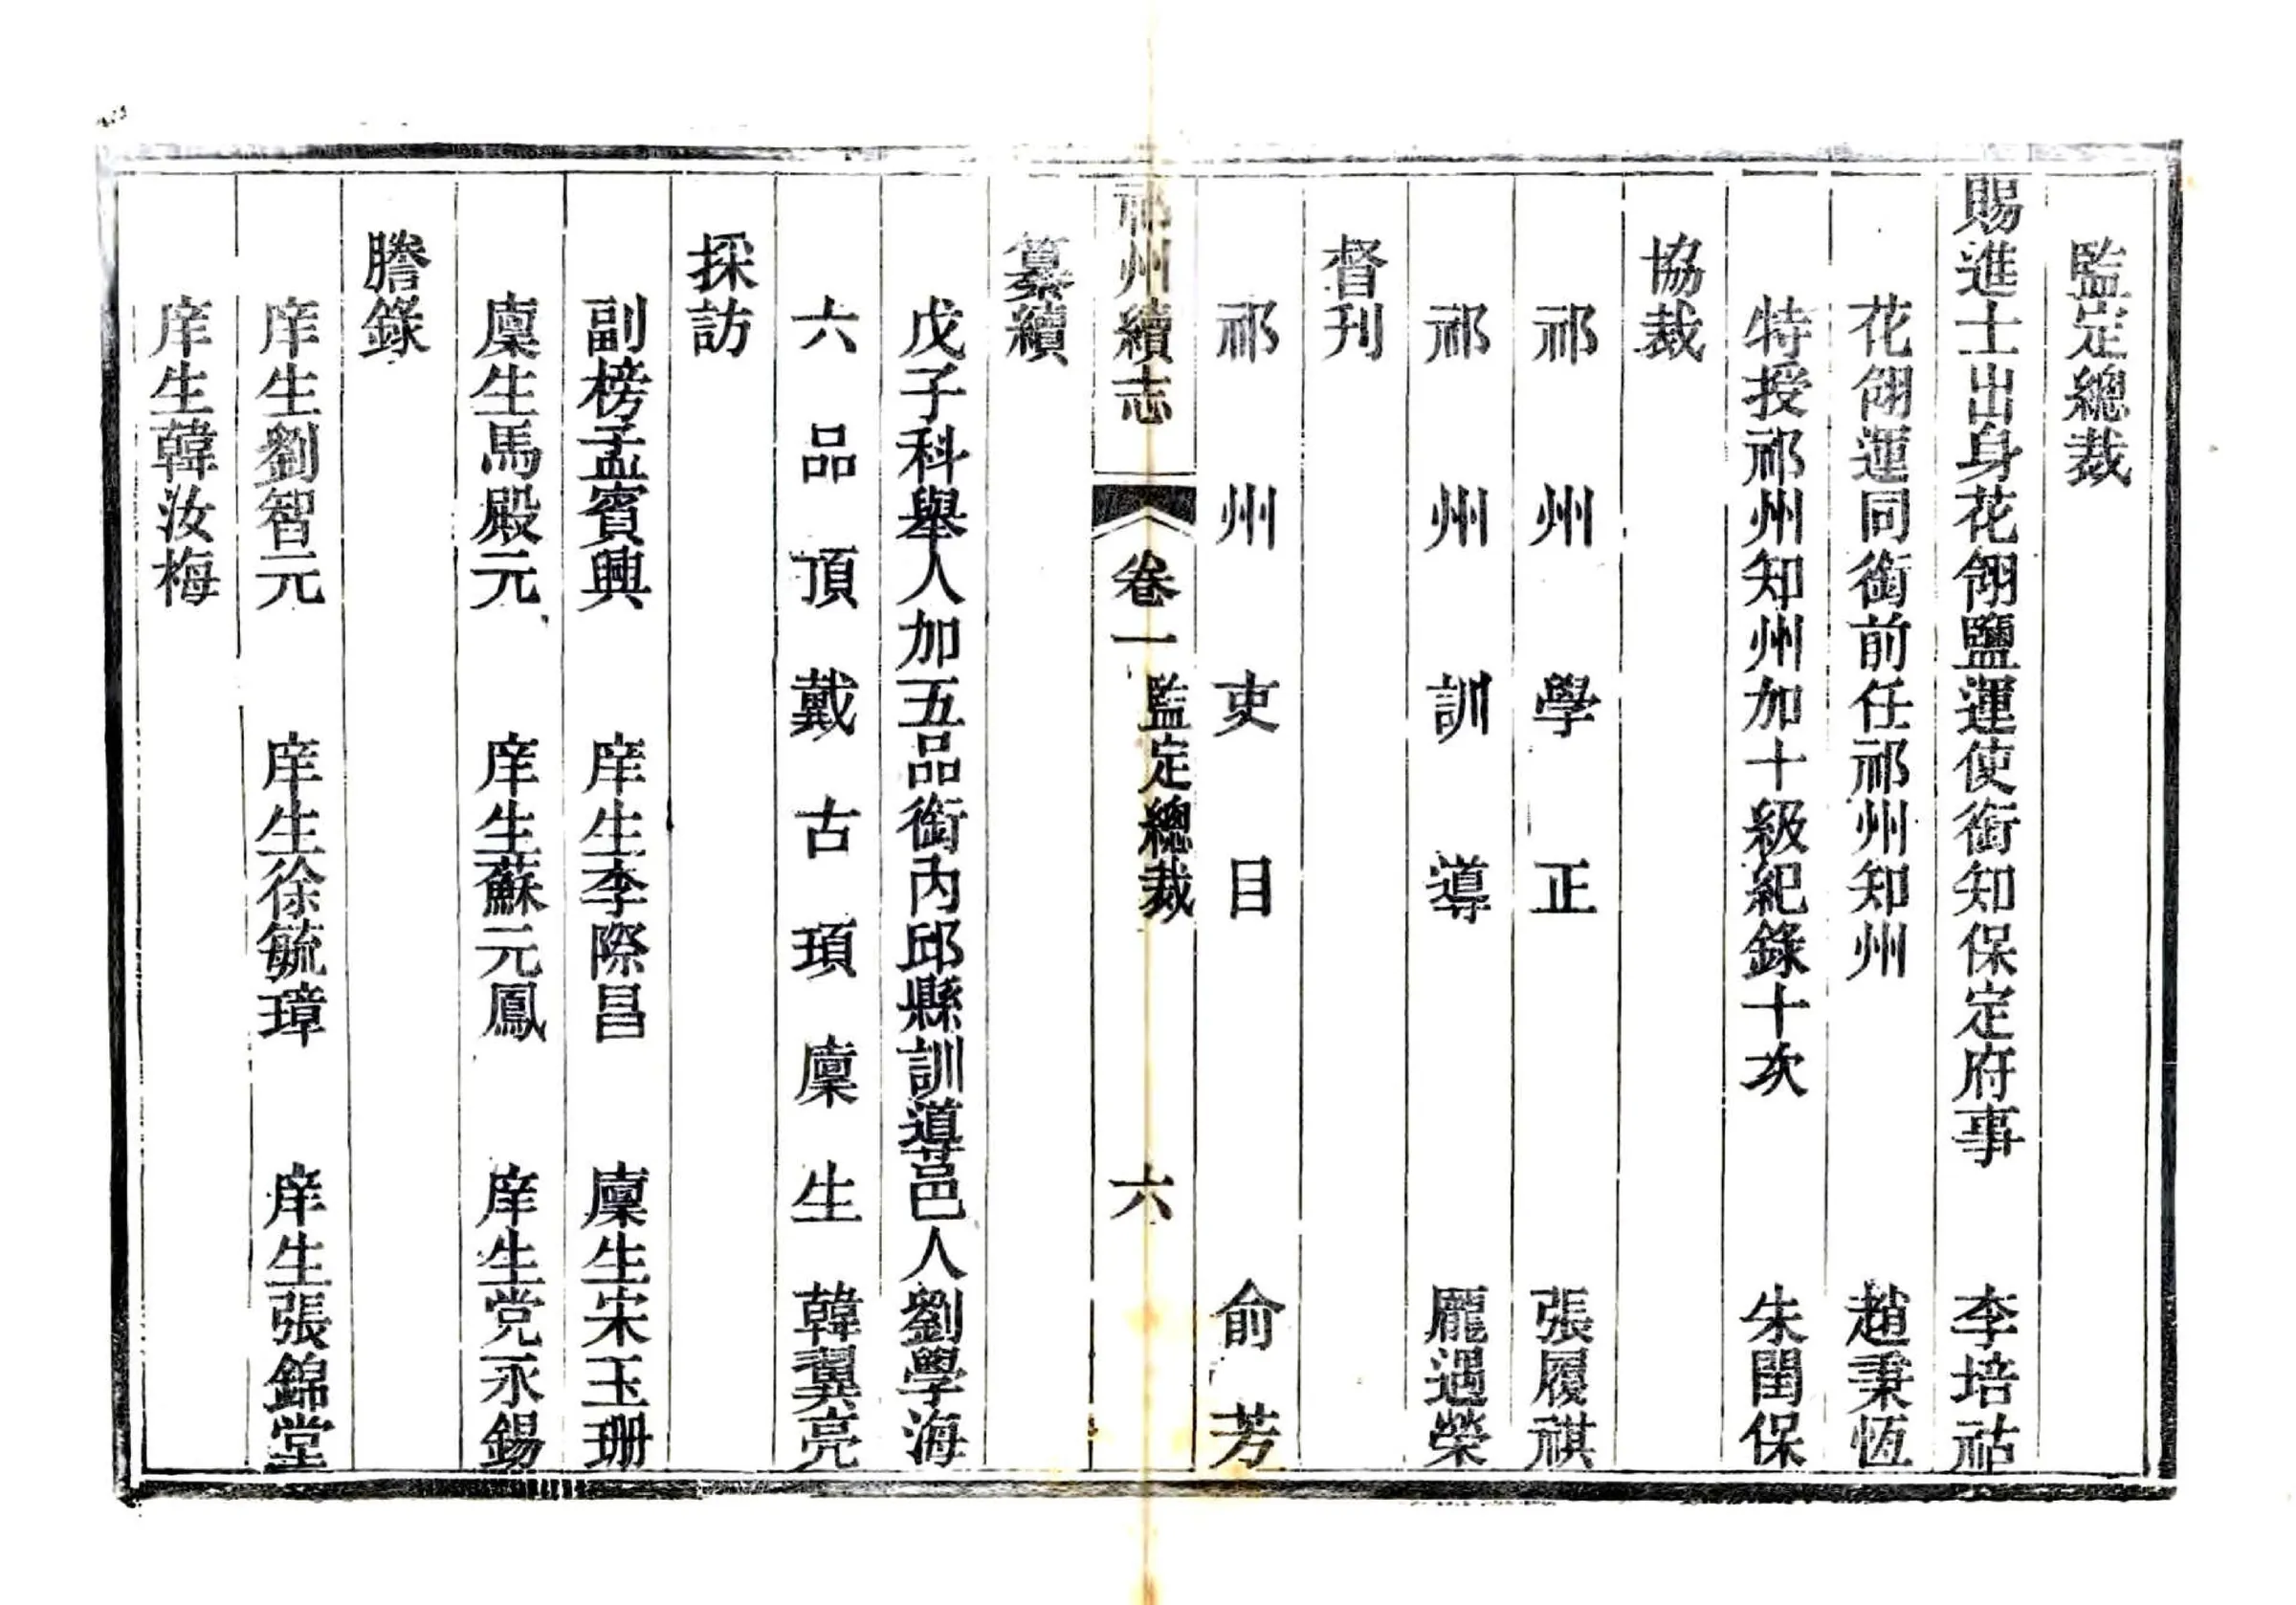 監定總裁
賜進士出身花翎鹽運使銜知保定府事　李培祜
花翎運同銜前任祁州知州　趙秉恆
特授祁州知州加十級紀錄十次　朱閏保
協裁
祁州學正　張履祺
祁州訓導　龐遇榮
督刊
祁州吏目　俞芳
祁州續志　卷一　監定總裁　六
纂續
戊子科舉人加五品銜內邱縣訓道莒邑人劉學海
六品頂戴古頊廩生韓翼亮
採訪
副榜孟賓興　庠生李際昌　廩生宋玉珊
廩生馬殿元　庠生蘇元鳳　庠生党永錫
謄錄
庠生劉智元　庠生徐毓璋　庠生張錦堂
庠生韓汝梅